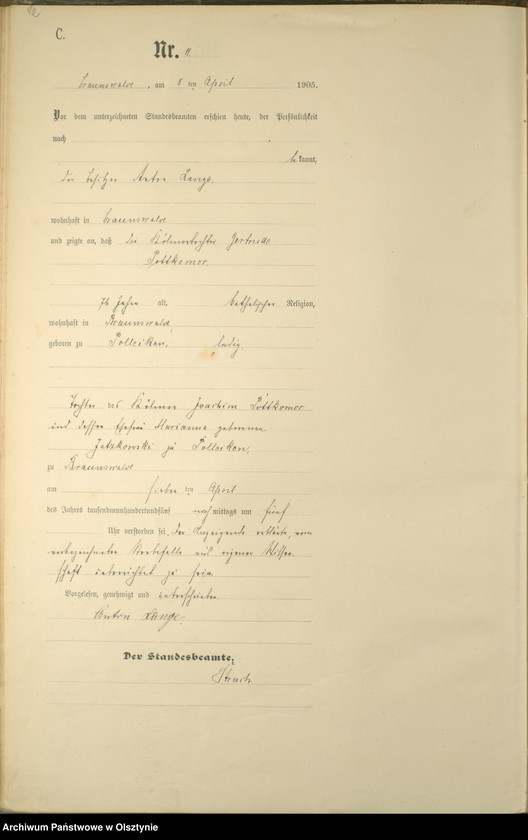 C.
Nr. 11
Braunswalde, am 8 ten April 1905.
Vor dem unterzeichneten Standesbeamten erschien heute, der Persönlichkeit
nach
bekannt,
der Besitzer Anton Lange.
wohnhaft in Braunswalde
und zeigte an, daß die Kölmertochter Gertrude
Pottkomor.
76 Jahre alt, katholischer Religion,
wohnhaft in Braunswalde,
geboren zu Polleiken, ledig.
Tochter des Kölmer Joachim Pottkomor
und dessen Ehefrau Marianna geborenen
zu Polleiken,
zu Braunswalde
am sieben ten April
des Jahres tausendneunhundertundfünf nachmittags um fünf
Uhr verstorben sei, der Anzeigende erklärte, vom
vorbezeichneten Sterbefalle aus eigener Wissen-
schaft unterrichtet zu sein.
Vorgelesen, genehmigt und unterschrieben
Anton Lange.
Der Standesbeamte.
Archiwum Państwowe w Olsztynie